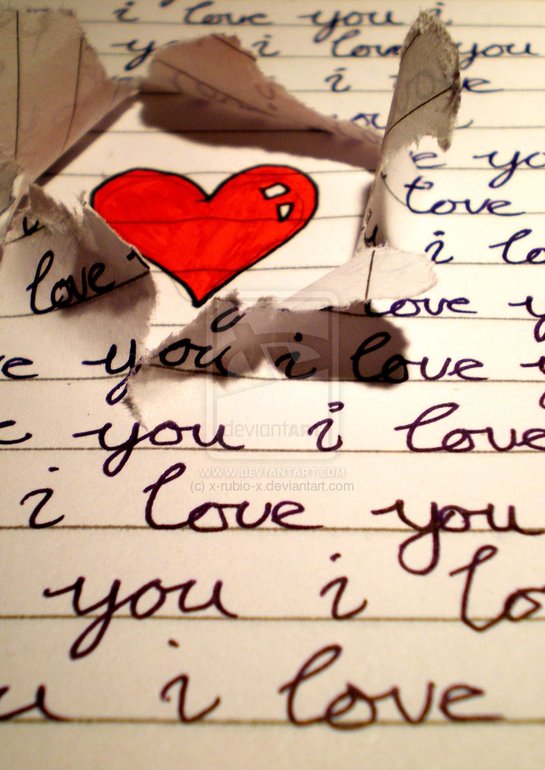 i love you i
y i love you
i
you
e yo
love
i lo
love
love y
e you i love y
you i love
deviantART
WWW.DEVIANTART.COM
(c) x-rubio-x.deviantart.com
i love you
you i lo
i love